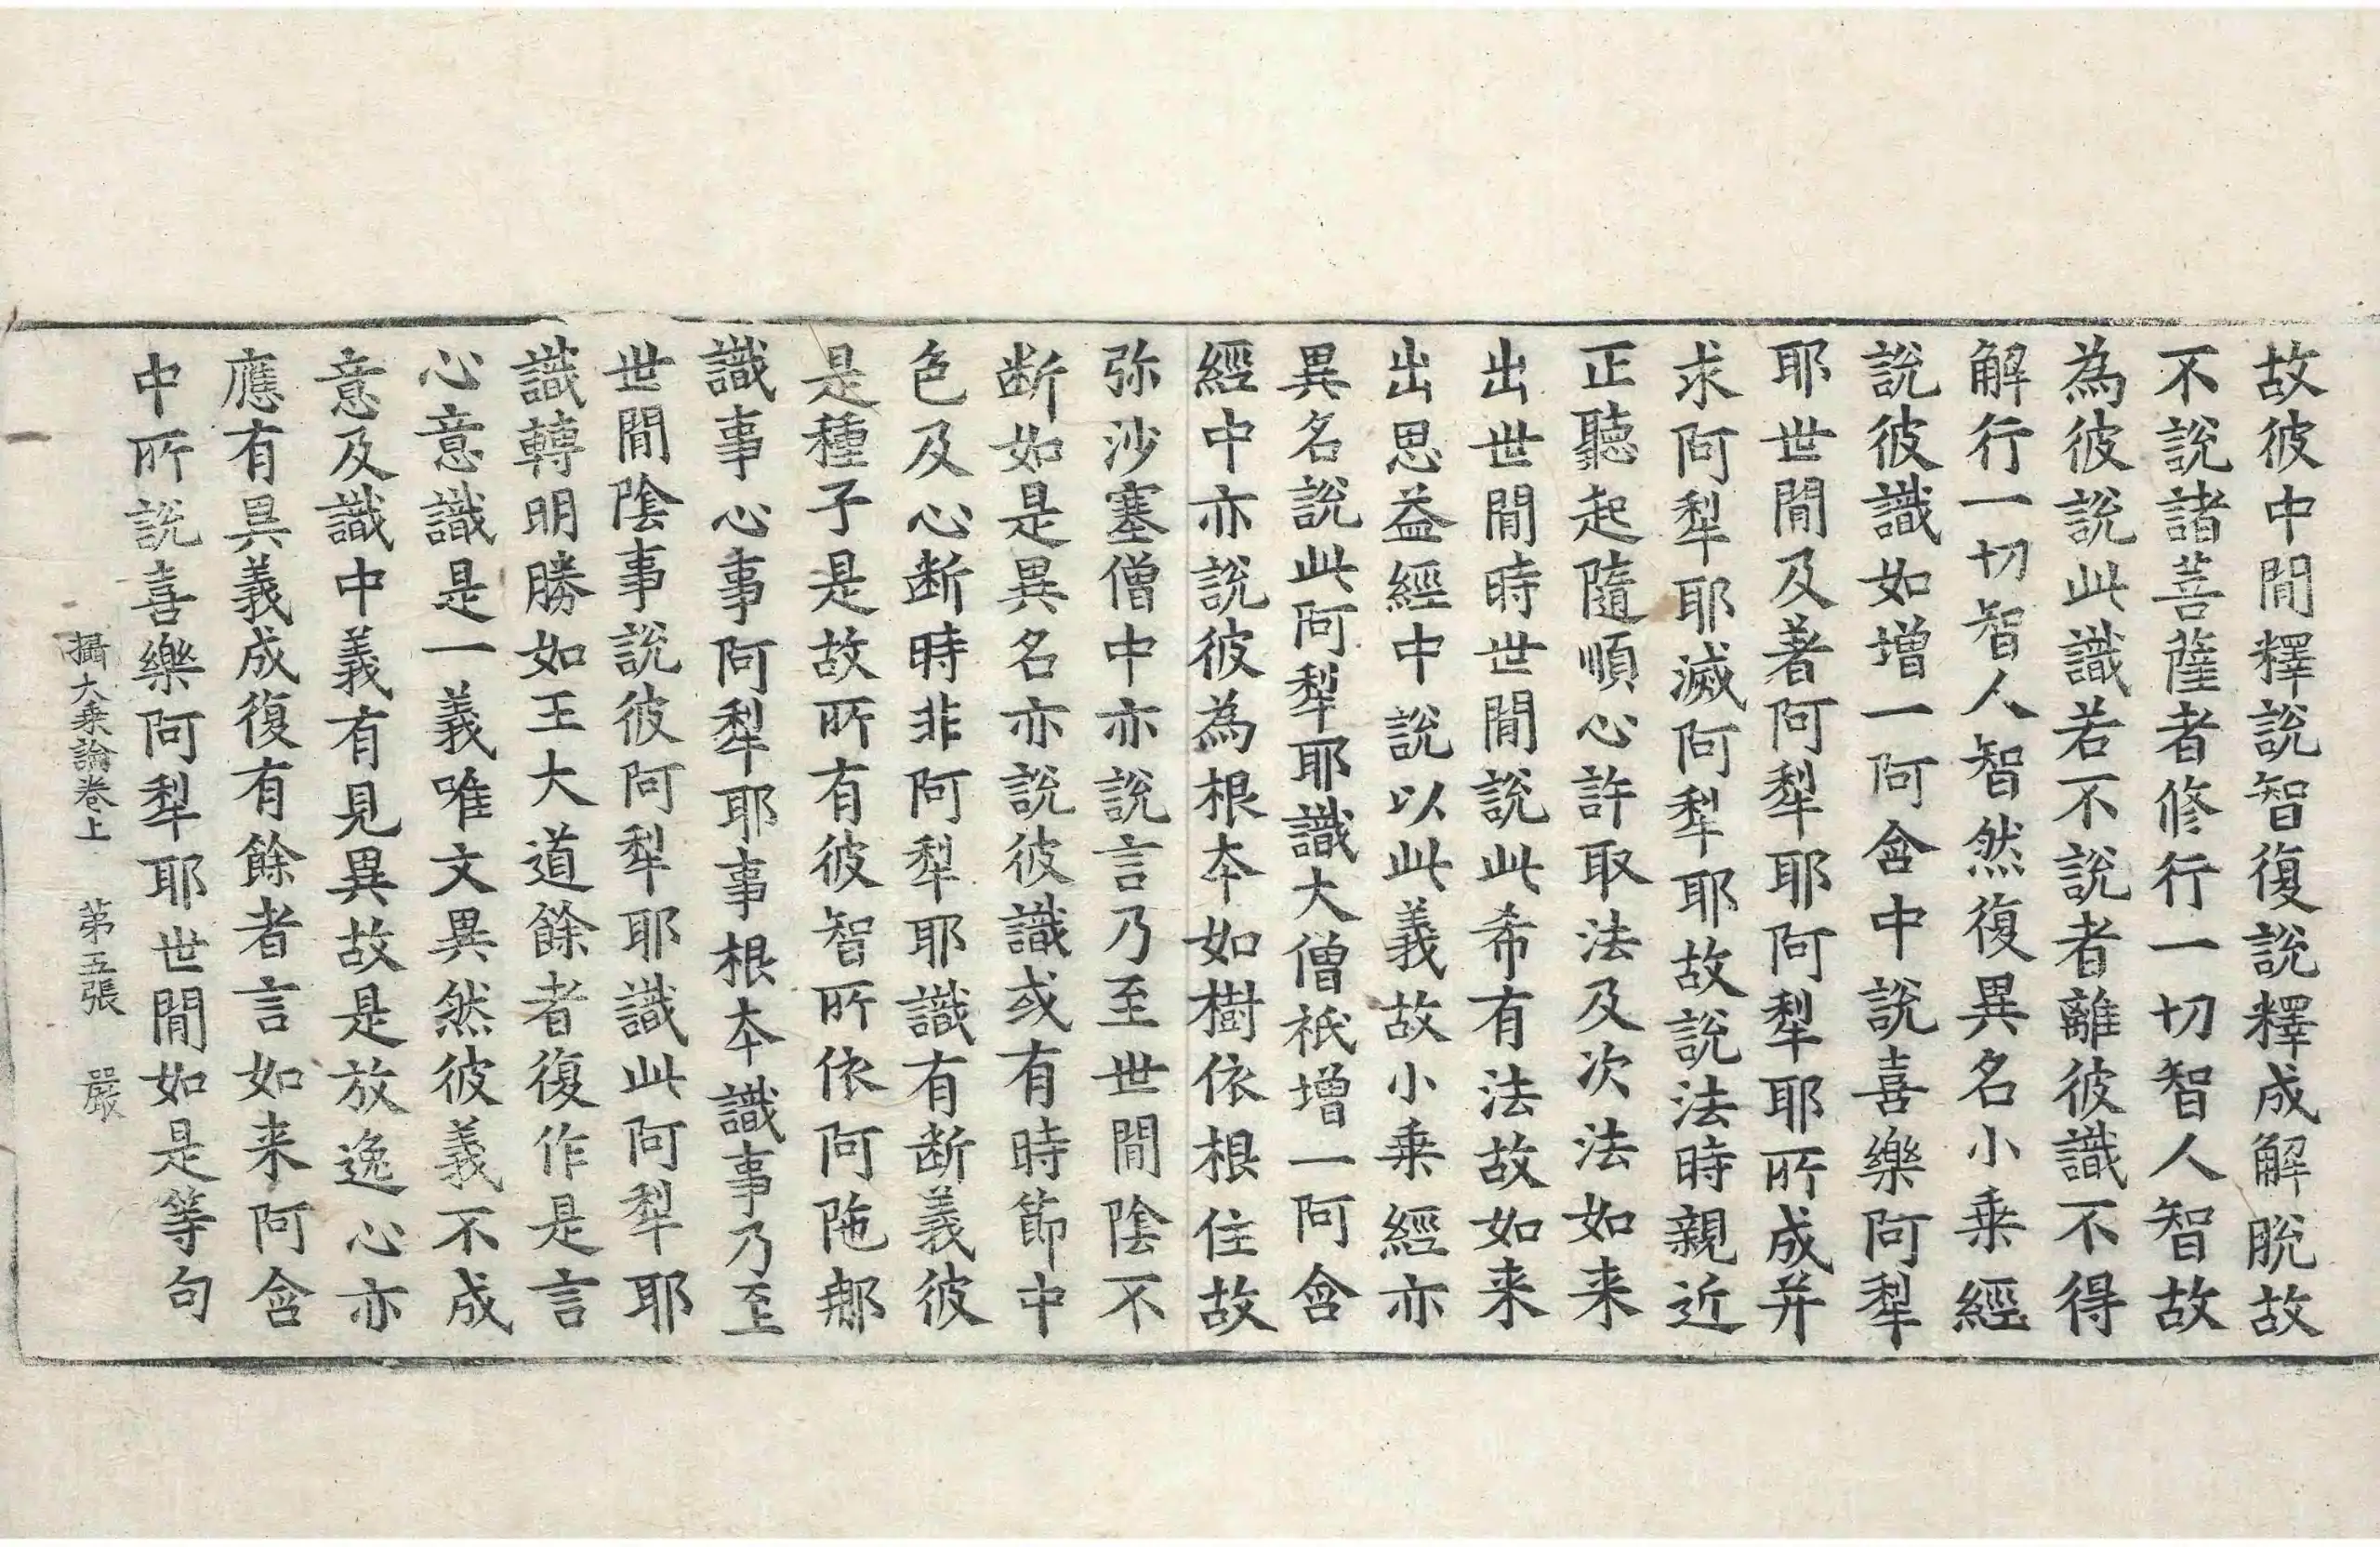 故彼中間釋說智復說釋成解脫故
不說諸菩薩者修行一切智人智故
為彼說此識若不說者離彼識不得
解行一切智人智然復異名小乗經
說彼識如增一阿含中說喜樂阿犁
耶世間及著阿犁耶阿犁耶所成并
求阿犁耶滅阿犁耶故說法時親近
正聽起隨順心許取法及次法如来
出世間時世間說此希有法故如来
出思益經中說以此義故小乗經亦
異名說此阿犁耶識大僧祇增一阿含
經中亦說彼為根夲如樹依根住故
弥沙塞僧中亦說言乃至世間陰不
断如是異名亦說彼識或有時節中
色及心断時非阿犁耶識有断義彼
是種子是故所有彼智所依阿陁那
識事心事阿犁耶事根夲識事乃至
世間陰事說彼阿犁耶識此阿犁耶
識轉明勝如王大道餘者復作是言
心意識是一義唯文異然彼義不成
意及識中義有見異故是放逸心亦
應有異義成復有餘者言如来阿含
中所說喜樂阿犁耶世間如是等句
攝大乗論卷上 第五張 嚴